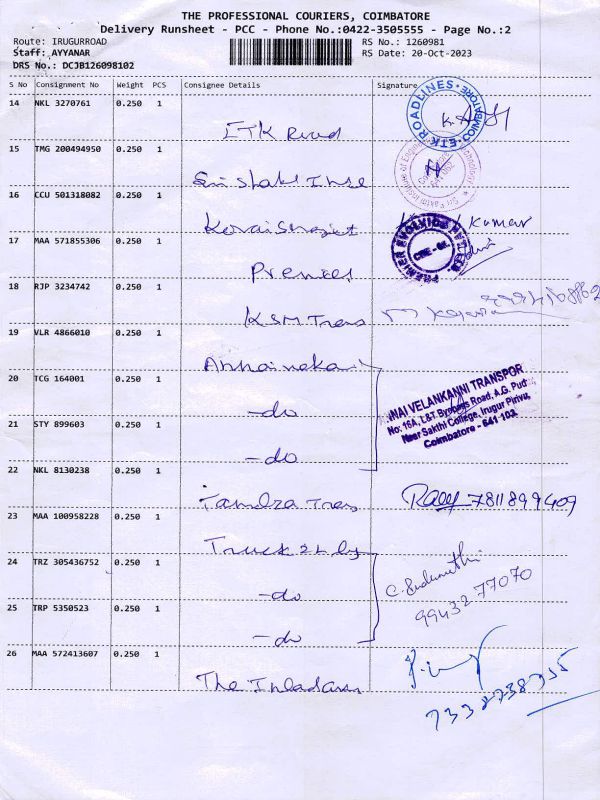 THE PROFESSIONAL COURIERS, COIMBATORE
Delivery Runsheet - PCC - Phone No.:0422-3505555 - Page No.:2
Route: IRUGURROAD
RS No.: 1260981
Staff: AYYANAR
RS Date: 20-Oct-2023
DRS No.: DCJB126098102
S No Consignment No Weight PCS Consignee Details Signature
14 NKL 3270761 0.250 1
ETK ROADLINES COIMBATORE
ETK Road
15 TMG 200494950 0.250 1
16 CCU 501318082 0.250 1
Kumar
17 MAA 571855306 0.250 1
PREMIER EVOLVICS
Premier
18 RJP 3234742 0.250 1
KSM Trans
19 VLR 4866010 0.250 1
20 TCG 164001 0.250 1
-do
ANNAI VELANKANNI TRANSPOR
No: 16A, L&T Byepass Road, A.G. Pud
Near Sakthi College, Irugur Pirivu,
Coimbatore - 641 103
21 STY 899603 0.250 1
-do
22 NKL 8130238 0.250 1
Trans
7811899409
23 MAA 100958228 0.250 1
Truck
24 TRZ 305436752 0.250 1
-do
99432 77070
25 TRP 5350523 0.250 1
-do
26 MAA 572413607 0.250 1
The
7338738755